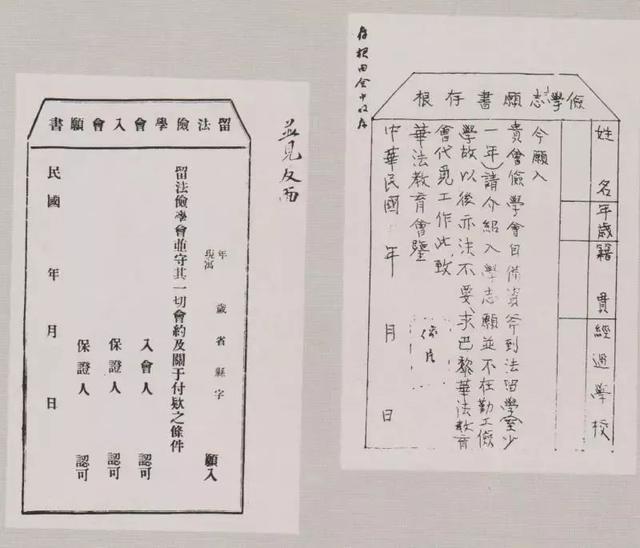 存根由会
儉學志願書存根
姓名
年歲
籍貫
經過學校
今願入
貴會儉學會自備資斧到法留學(至少
一年)請介紹入學志願並不在勤工儉
學故以後亦決不要求巴黎華法教育
會代覓工作此致
華法教育會鑒
中華民國 年 月 日
並見反面
留法儉學會入會願書
年 歲 省 縣 字
現寓 願入
留法儉學會並守其一切會約及關于付欵之條件
入會人 認可
保證人 認可
保證人 認可
民國 年 月 日